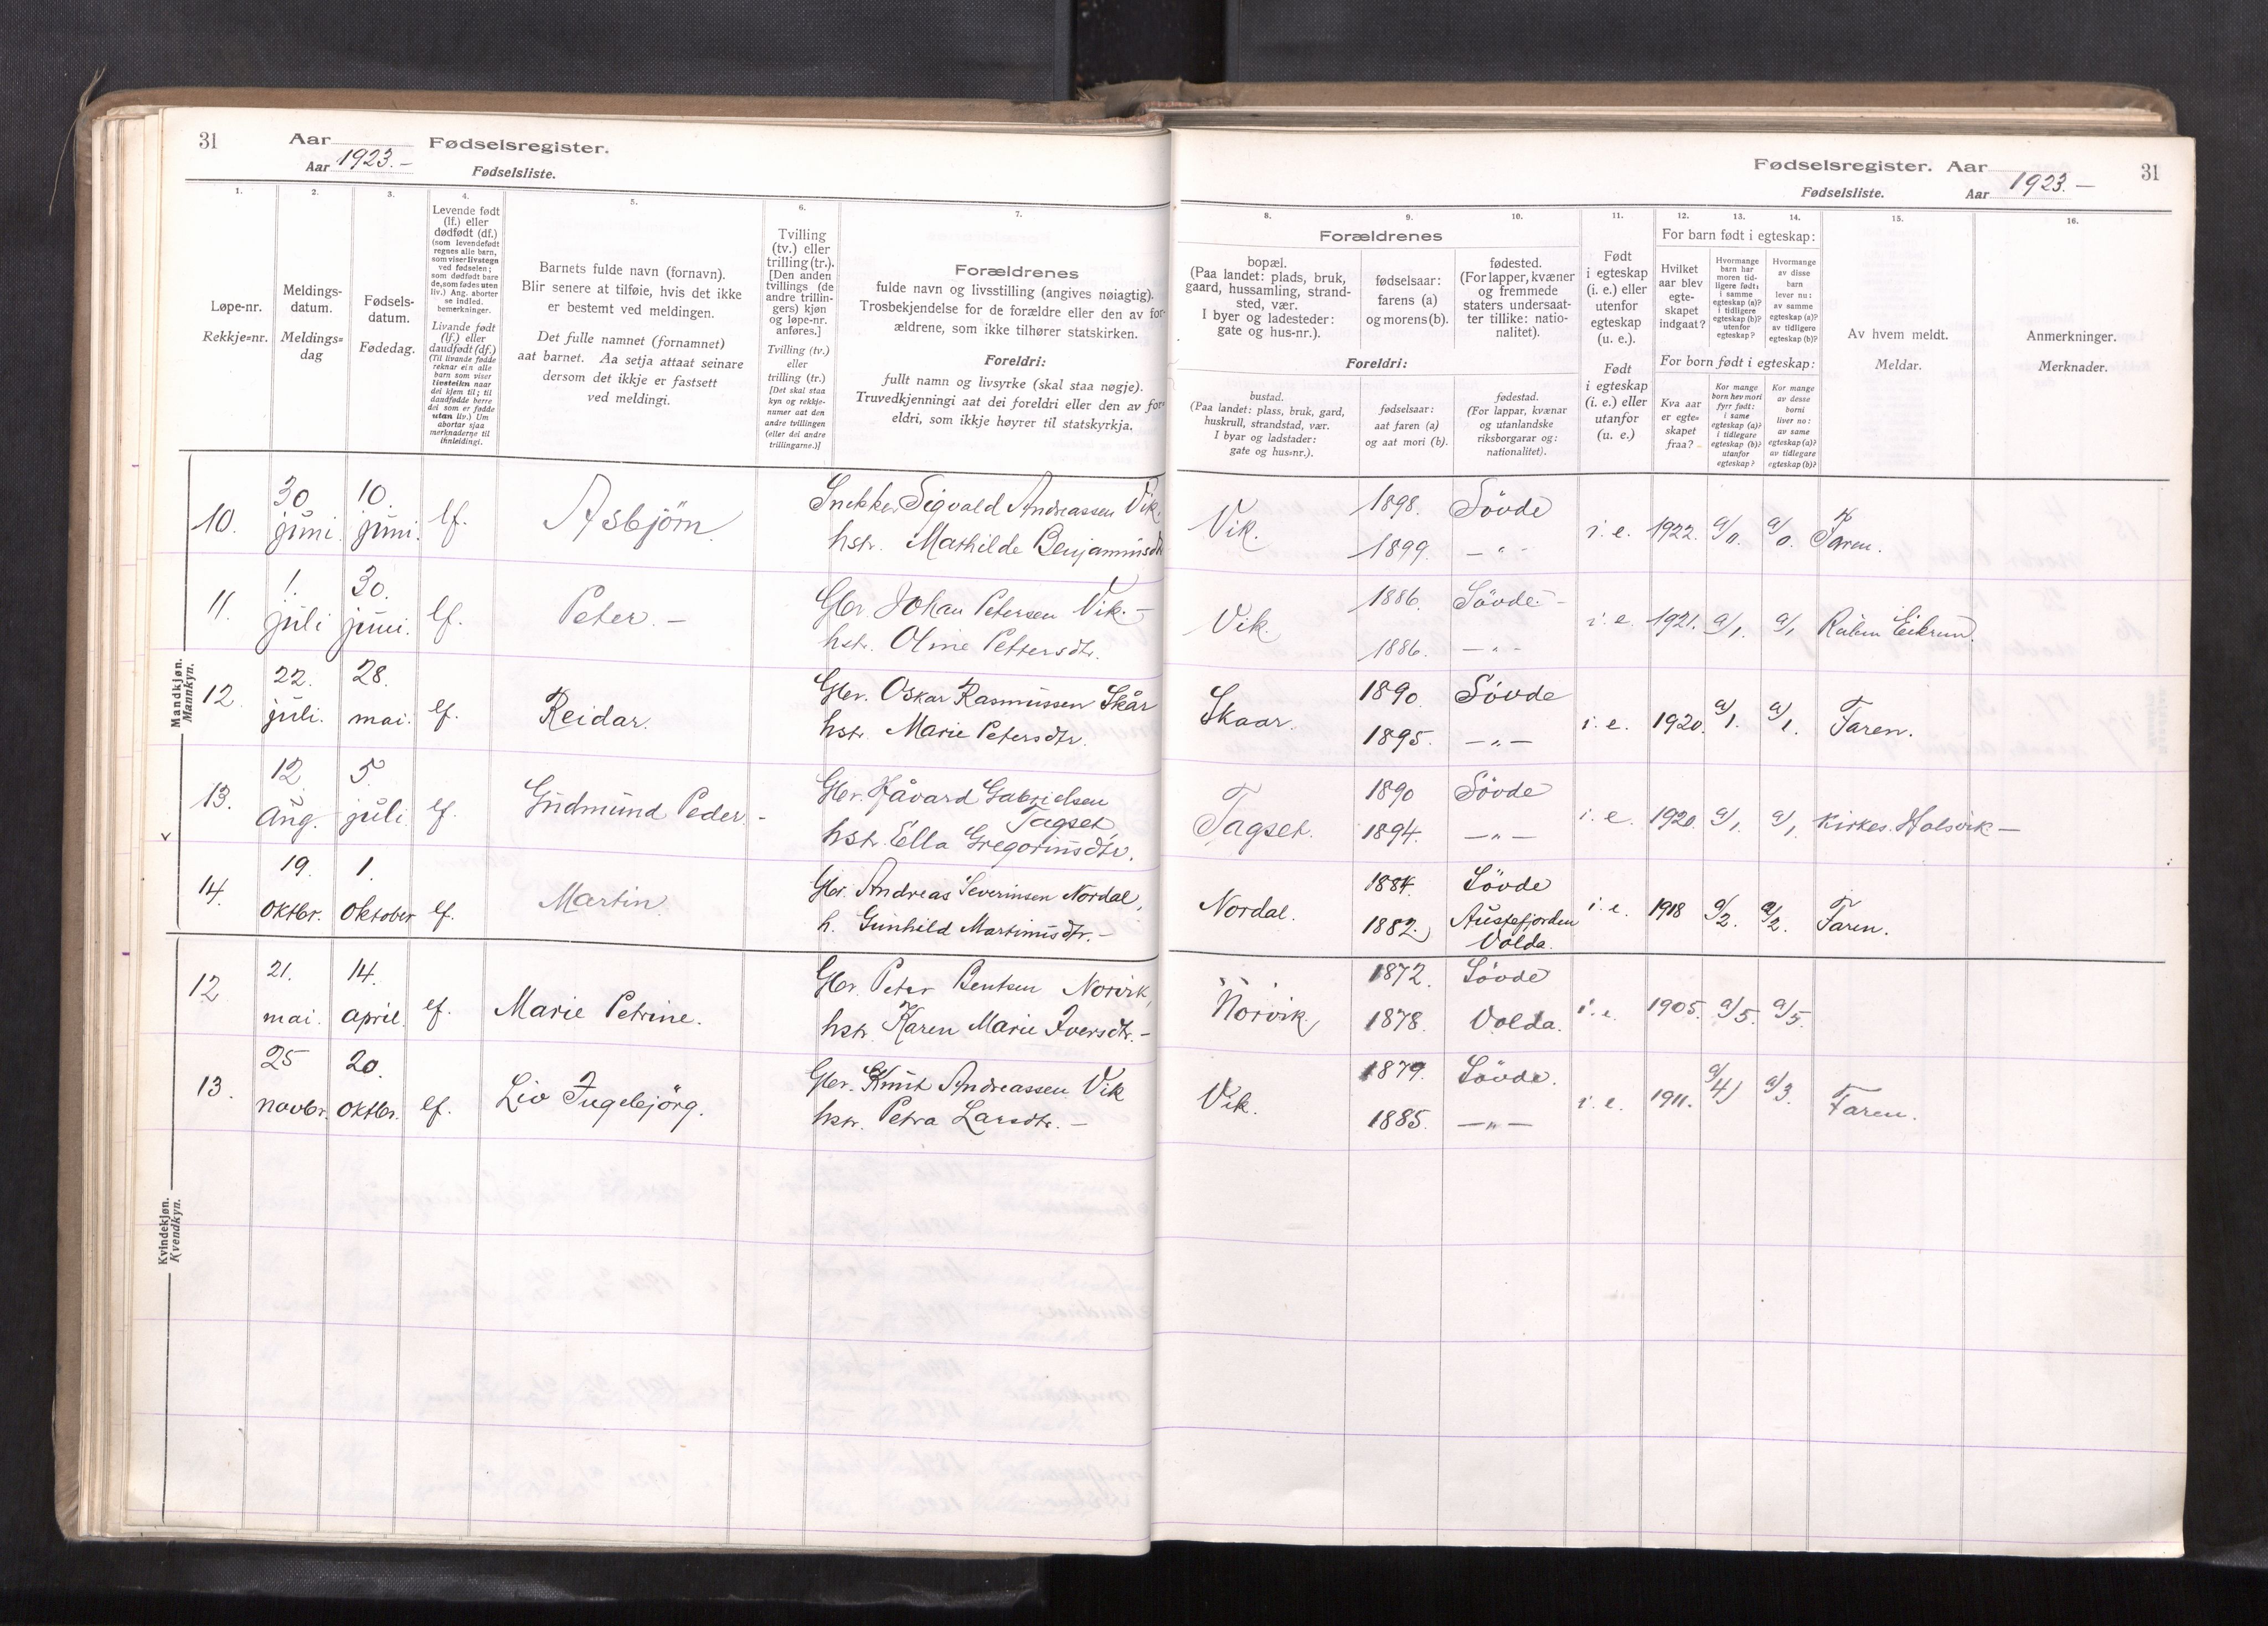 31
Aar
Fødselsregister.
Aar 1923.-
Fødselsliste.
Fødselsregister. Aar
31
Fødselsliste.
Aar 1923.-
1.
Løpe-nr.
Rekkje=nr.
2.
Meldings-
datum.
Meldings=
dag
3.
Fødsels-
datum.
Fødedag.
4.
Levende født
(lf.) eller
dødfødt (df.)
(som levendefødt
regnes alle barn,
som viser livstegn
ved fødselen;
som dødfødt bare
de, som fødes uten
liv.) Ang. aborter
se indled.
bemerkninger.
Livande født
(lf.) eller
daudfødt (df.)
(Til livande fødde
reknar ein alle
barn som viser
livsteikn naar
dei kjem til; til
daudfødde berre
dei som er fødde
utan liv.) Um
abortar sjaa
merknaderne til
innleidingi.
5.
Barnets fulde navn (fornavn).
Blir senere at tilføie, hvis det ikke
er bestemt ved meldingen.
Det fulle namnet (fornamnet)
aat barnet. Aa setja attaat seinare
dersom det ikkje er fastsett
ved meldingi.
6.
Tvilling
(tv.) eller
trilling (tr.).
[Den anden
tvillings (de
andre trillin-
gers) kjøn
og løpe-nr.
anføres.]
Tvilling (tv.)
eller
trilling (tr.)
[Det skal staa
kyn og rekkje-
numer aat den
andre tvillingen
(eller dei andre
trillingarne.)]
7.
Forældrenes
fulde navn og livsstilling (angives nøiagtig).
Trosbekjendelse for de forældre eller den av for-
ældrene, som ikke tilhører statskirken.
Foreldri:
fullt namn og livsyrke (skal staa nøgje).
Truvedkjenningi aat dei foreldri eller den av for-
eldri, som ikkje høyrer til statskyrkja.
Forældrenes
8.
bopæl.
(Paa landet: plads, bruk,
gaard, hussamling, strand-
sted, vær.
I byer og ladesteder:
gate og hus-nr.).
9.
fødselsaar:
farens (a)
og morens (b).
10.
fødested.
(For lapper, kvæner
og fremmede
staters undersaat-
ter tillike: natio-
nalitet).
Foreldri:
bustad.
(Paa landet: plass, bruk, gard,
huskrull, strandstad, vær.
I byar og ladstader:
gate og hus=nr.).
fødselsaar:
aat faren (a)
og aat mori (b).
fødestad.
(For lappar, kvænar
og utanlandske
riksborgarar og:
nationalitet).
11.
Født
i egteskap
(i. e.) eller
utenfor
egteskap
(u. e.).
Født
i egteskap
(i. e.) eller
utanfor
(u. e.)
12.
13.
14.
For barn født i egteskap:
Hvilket
aar blev
egte-
skapet
indgaat?
Hvormange
barn har
moren tid-
ligere født:
i samme
egteskap (a)?
i tidligere
egteskap (b)?
utenfor
egteskap?
Hvormange
av disse
barn
lever nu:
av samme
egteskap (a)?
av tidligere
egteskap (b)?
For born født i egteskap:
Kva aar
er egte=
skapet
fraa?
Kor mange
born hev mori
fyrr født:
i same
egteskap (a)?
i tidlegare
egteskap (b)?
utanfor
egteskap?
Kor mange
av desse
borni
liver no:
av same
egteskap (a)?
av tidlegare
egteskap (b)?
15.
Av hvem meldt.
Meldar.
16.
Anmerkninger.
Merknader.
Mandkjøn.
Mannkyn.
10. 30 juni. 10. juni. lf. Asbjörn. Snekker Sigvald Andreassen Vik. Vik. 1898. Sövde i. e. 1922. a/0. a/0. Faren.
hstr. Mathilde Benjaminsdtr 1899. - " -
11. 1. juli 30. juni. lf. Peter. - Gbr. Johan Petersen Vik. - Vik. 1886. Sövde - i. e. 1921. a/1. a/1 Eikrem.
hstr. Oline Pettersdtr. 1886. - " -
12. 22. juli. 28. mai. lf. Reidar. Gbr. Oskar Rasmussen Skår Skaar. 1890. Sövde i. e. 1920. a/1. a/1. Faren.
hstr. Marie Petersdtr. 1895. - " -
13. 12 Aug. 5. juli. lf. Gudmund Peder. - Gbr. Håvard Gabrielsen Tagset, Tagset. 1890 Sövde i. e. 1920. a/1. a/1, Kirkes. Holsvik -
hstr. Ella Gregoriusdtr. 1894. - " -
14. 19. oktbr. 1. oktober lf. Martin. Gbr. Andreas Severinsen Nordal, Nordal. 1884. Sövde i. e. 1918 a/2. a/2. Faren.
h. Gunhild Martinusdtr. - 1882. Austefjorden
Volda.
Kvindekjøn.
Kvendkyn.
12 21. mai. 14. april. lf. Marie Petrine. Gbr. Peter Bentsen Norvik, Norvik, 1872. Sövde i. e. 1905. a/5. a/5.
hstr. Karen Marie Iversdtr. - 1878. Volda.
13. 25 novbr. 20. oktbr. lf. Liv Ingebjörg. Gbr. Knut Andreassen Vik Vik. 1879. Sövde. i. e. 1911. a/4) a/3. Faren.
hstr. Petra Larsdtr. - 1885. - " -